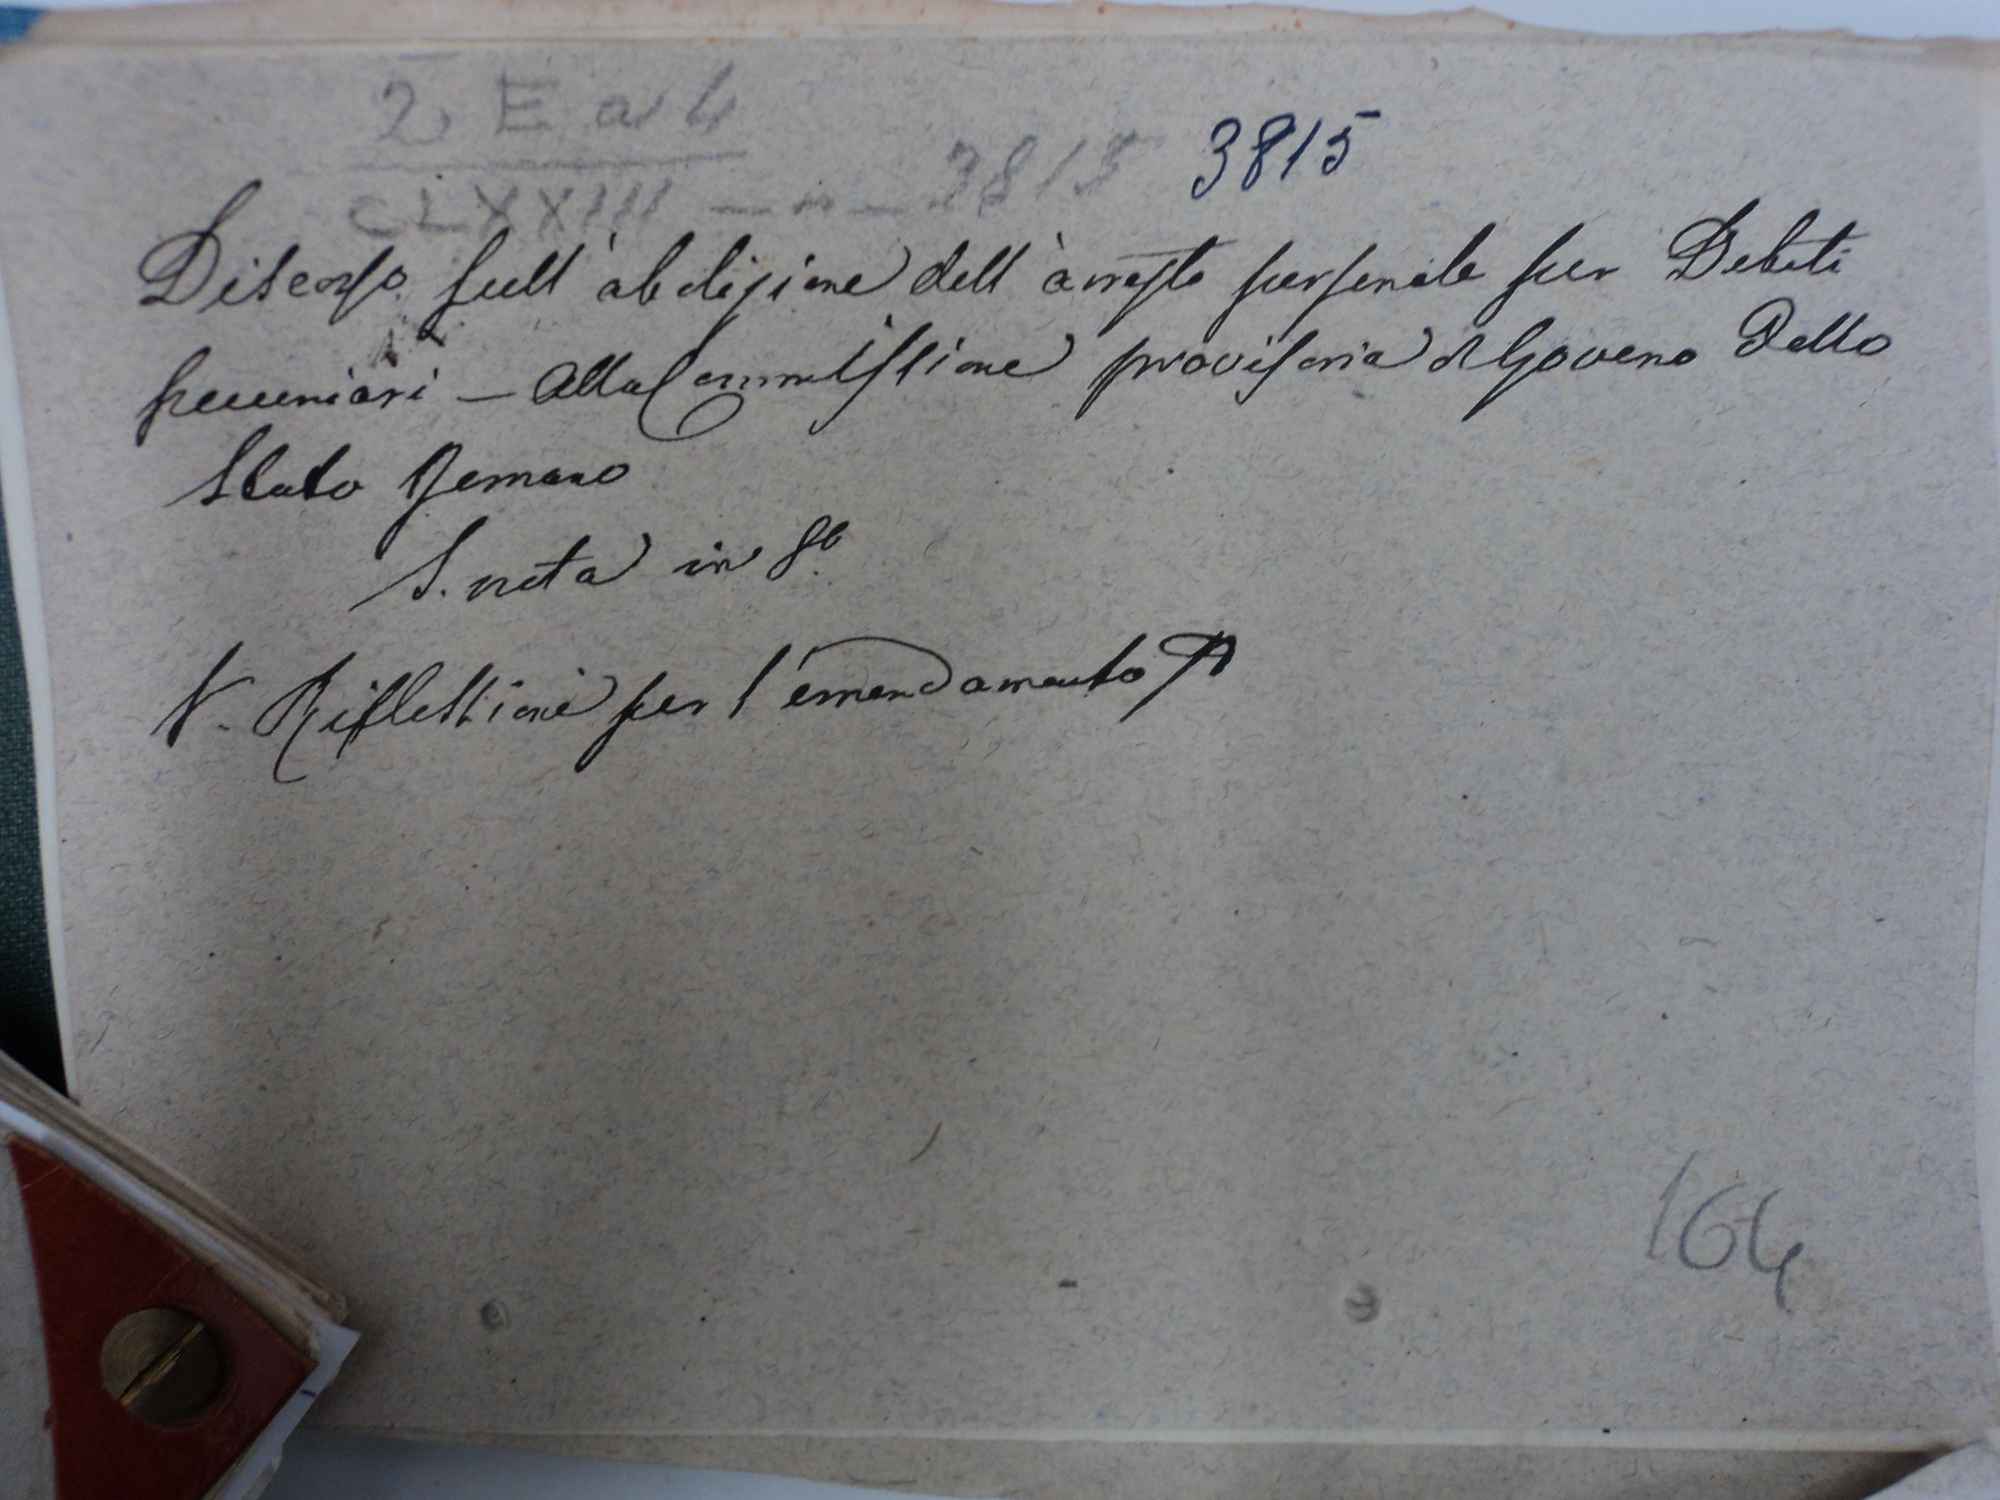 2 E a 4
CLXXIII — n — 3815 3815
Discorso sull' abolizione dell' arresto personale per Debiti
pecuniari — Alla Commissione provisoria di Governo dello
Stato Romano
S. nota in 8º
V. Riflessioni per l'emendamento
164